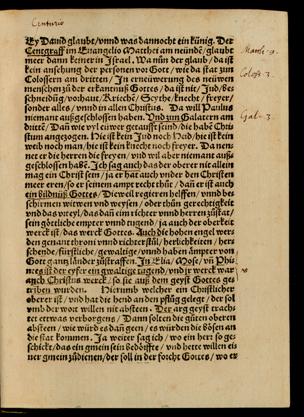 Centurio
Ey Dauid glaubt/vnnd was dannocht ein künig. Der
Centgraff im Euangelio Matthei am neünde/glaubt
meer dann keiner in Jsrael. Wa nun der glaub/da ist
kein ansehung der personen vor Gott/wie da stat zun
Colossern am dritten/Jn erneüwerung des neüwen
menschen zů der erkantnüs Gottes/da ist nit/Jud/be
schneidūg/vorhaut/Kriechē/Scythe/knecht/freyer/
sonder alles/vnnd in allen Christus. Da will Paulus
niemant außgeschlossen haben. Vnd zun Galatern am
dritte/Dan wie vyl eüwer getaufft seind/die habē Chri
stum angezogen. Hie ist kein Jud noch Heid/hie ist kein
weib noch man/hie ist kein knecht noch freyer. Da nen
net er die herren die freyen/vnd wil aber niemant auß
geschlossen habē. Jch sag auch das der oberer nit allein
mag ein Christ sein/ja er hat auch vnder den Christen
meer eren/so er seinem ampt recht thůt/dañ er ist auch
ein bildnüß Gottes. Die weil regieren helffen/vnnd be
schirmen witwen vnd weysen/oder thůn gerechtigkeit
vnd das vrteyl/das dañ eim richter vnnd herren zůstat/
sein götliche empter vnnd tugend/ja auch der oberkeit
werck ist/das werck Gottes. Auch die hohen engel wer
den genant throni vnnd richterstůl/herlichkeiten/herr
schende/fürstliche/gewaltige/vnnd haben ämpter von
Gott gantz länder zůstraffen. Jn Elia/Mose/vñ Phi
nees ist der eyfer ein gwaltige tugend/vnd jr werck war
auch Christus werck/so sie auß dem geyst Gottes ge
triben wurden. Hierumb welcher ein Christlicher
oberer ist/vnd hat die hend an den pflůg gelegt/der sol
vmb der wort willen nit absteen. Der arg geyst tracht
tet etwas verborgens/Dann solten die gůten oberen
absteen/wie würd es dañ geen/es würden die bösen an
die stat kommen. Ja weiter sag ich/wo ein herr so ge
schickt/das ein gmein sein bedörffte/vnd hette willen ei
ner gmein zůdienen/der soll in der forcht Gottes/wo er
Matth. 9.
Coloss. 3.
Gal. 3.